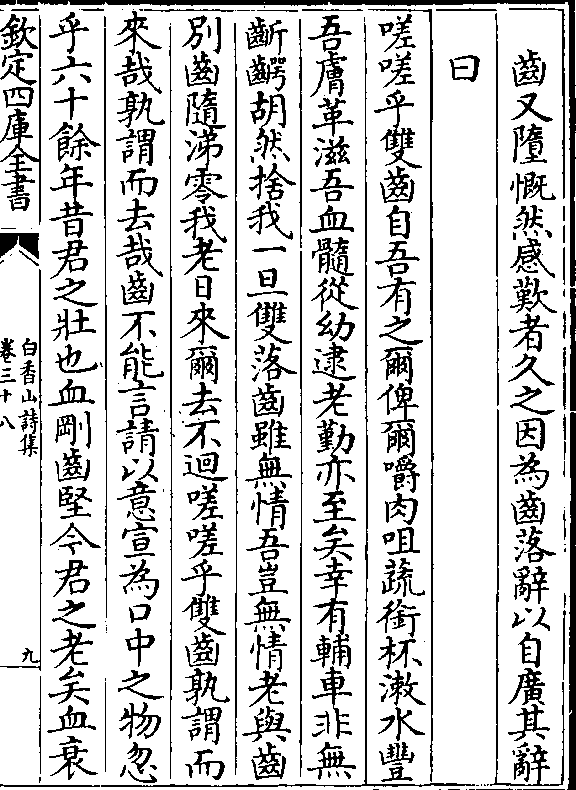 齒又隳慨然感歎者久之因為齒落辭以自廣其辭
曰
嗟嗟乎雙齒自吾有之爾俾爾嚼肉咀蔬銜杯漱水豐
吾膚革滋吾血髓從幼逮老勤亦至矣幸有輔車非無
齗齶胡然捨我一旦雙落齒雖無情吾豈無情老與齒
別齒隨涕零我老日來爾去不迴嗟嗟乎雙齒孰謂而
來哉孰謂而去哉齒不能言請以意宣為口中之物忽
乎六十餘年昔君之壯也血剛齒堅今君之老矣血衰
欽定四庫全書
白香山詩集
卷三十八
九